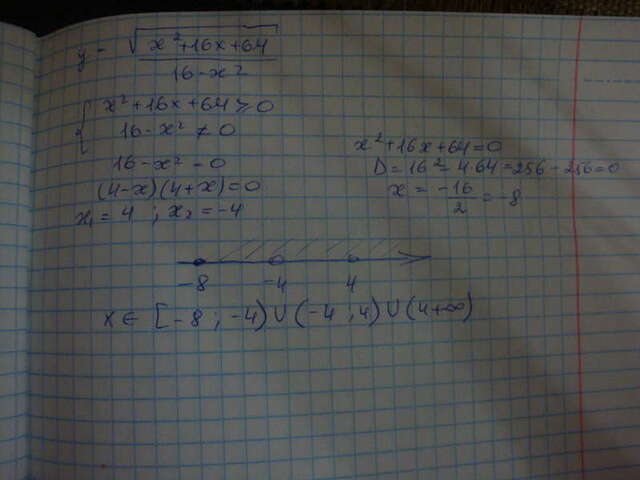 y = √(x²+16x+64) / (16-x²)
{ x²+16x+64 ≥ 0
16-x² ≠ 0
16-x² = 0
(4-x)(4+x)=0
x₁ = 4 ; x₂ = -4
x²+16x+64=0
D=16²-4·64=256-256=0
x = -16/2 = -8
-8 -4 4
x ∈ [-8 ; -4)∪(-4 ; 4)∪(4+∞)